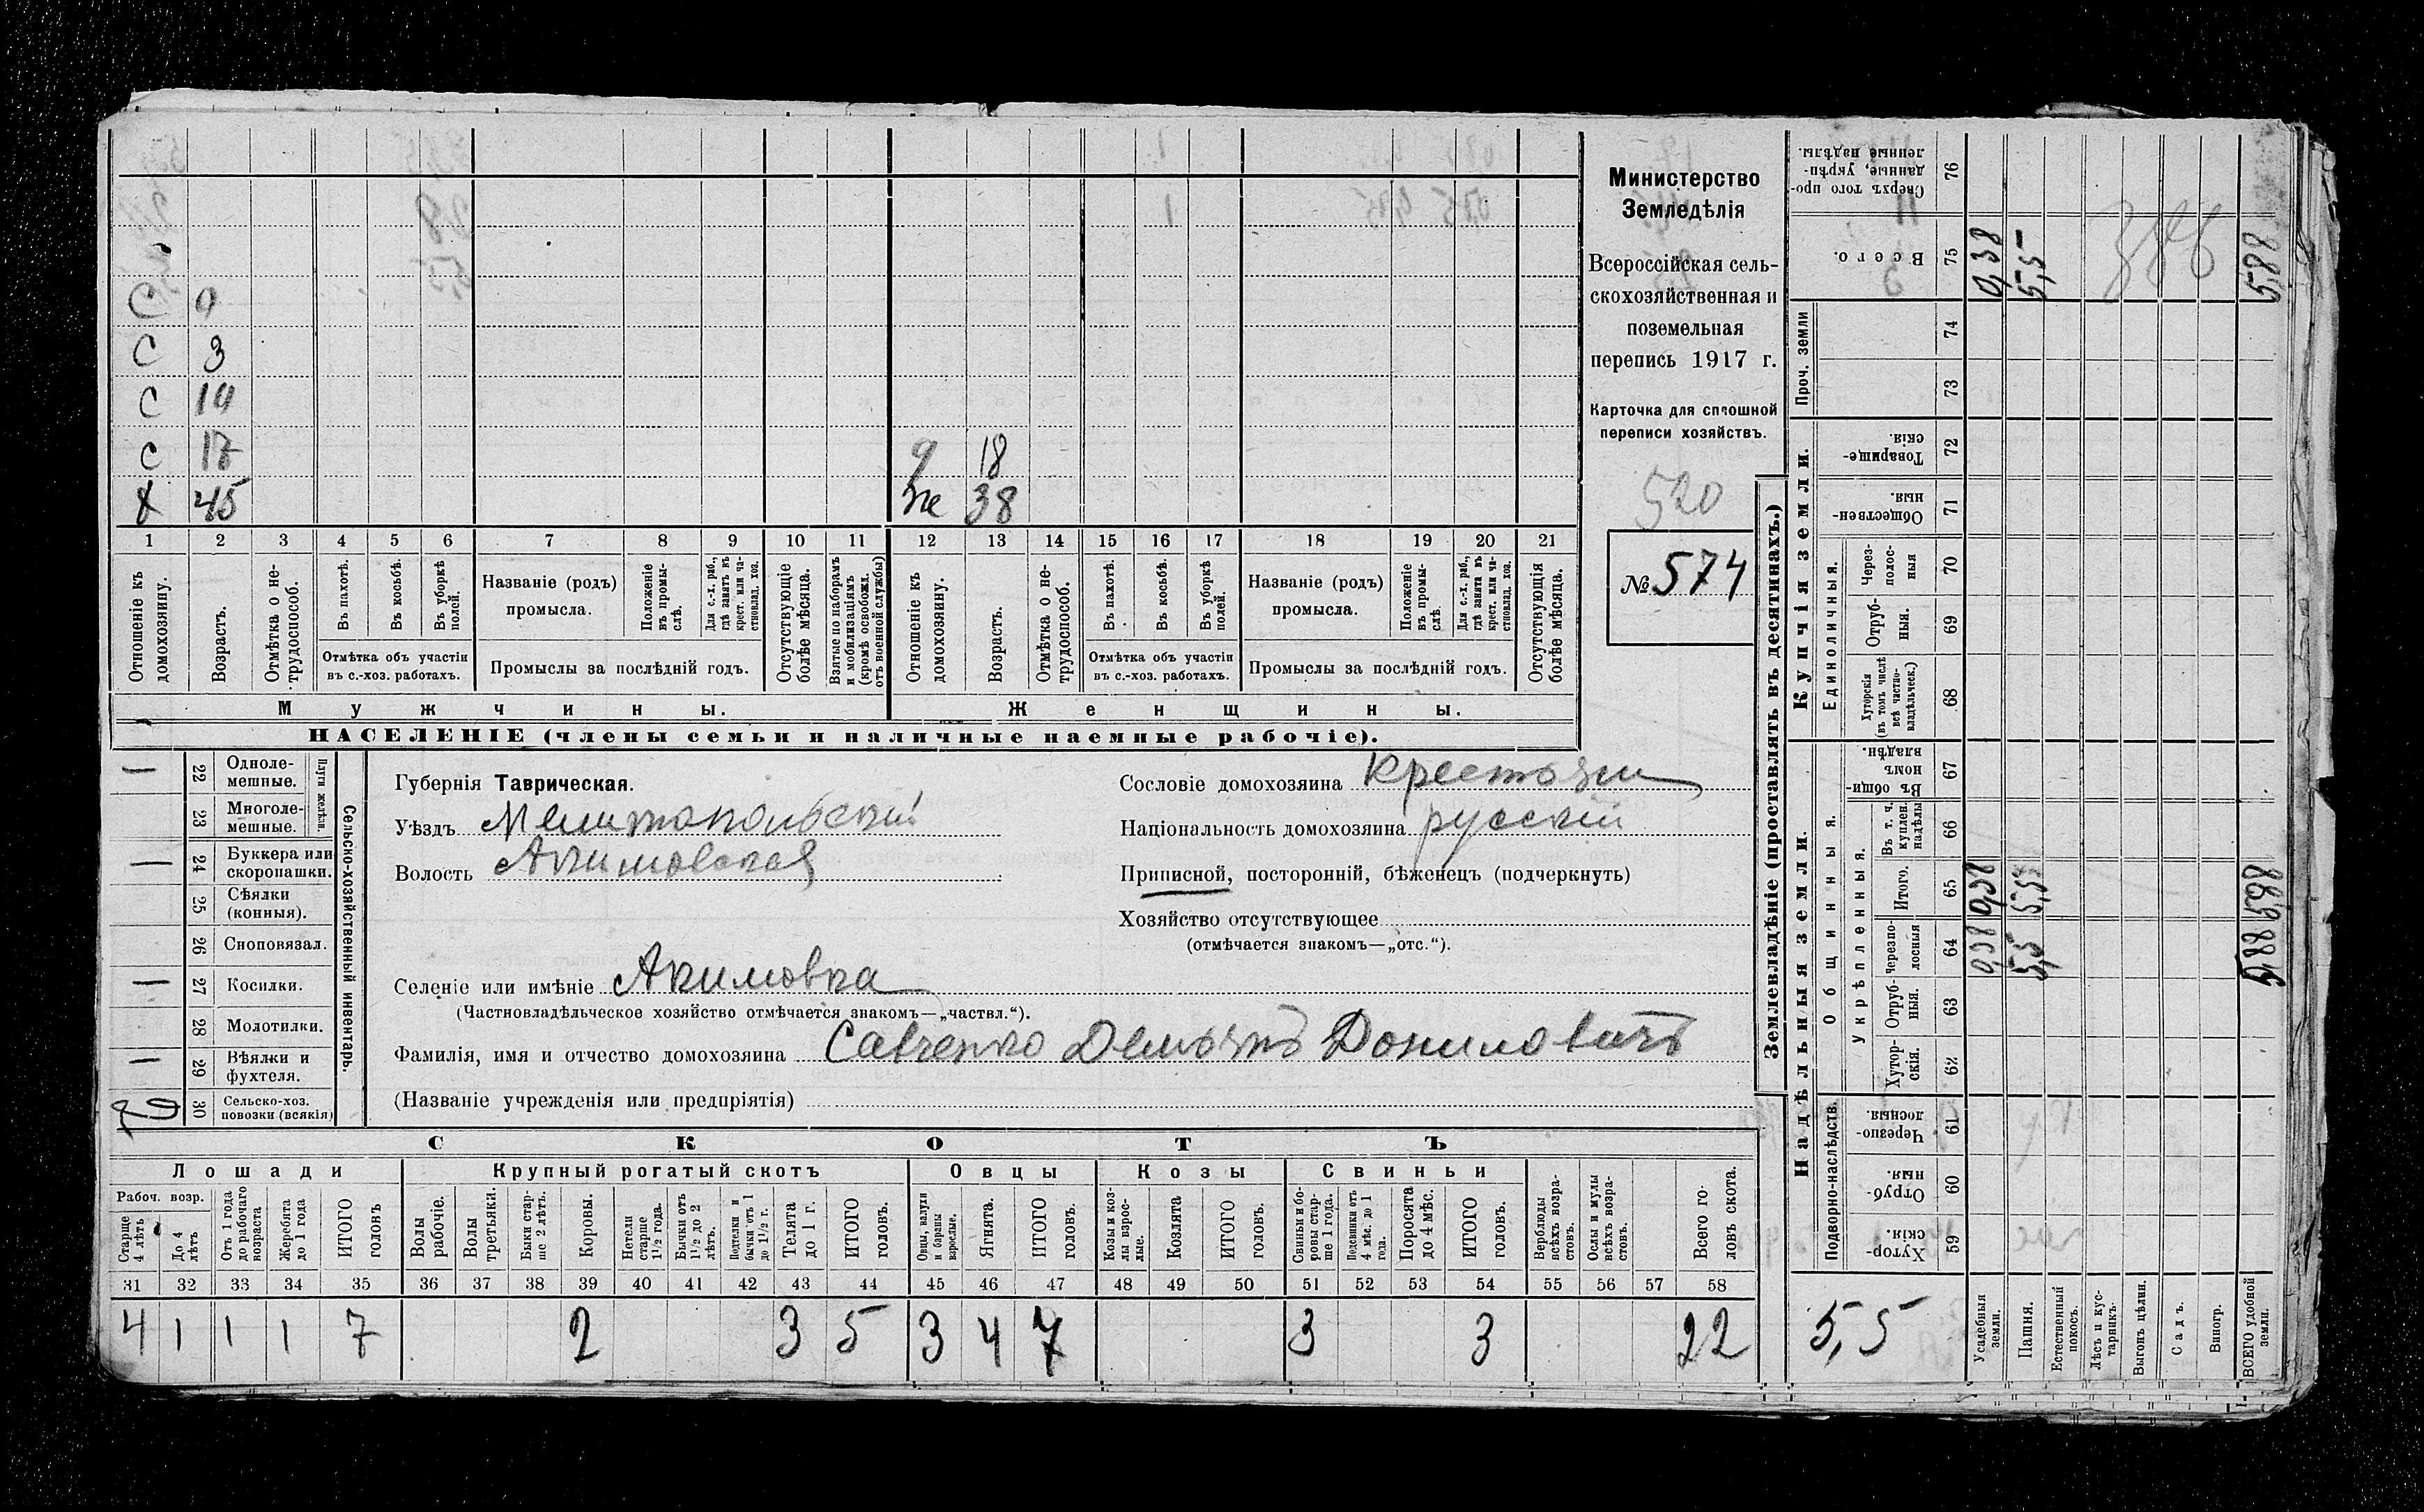 Министерство
Земледѣлія
Всероссійская сель-
скохозяйственная и
поземельная
перепись 1917 г.
Карточка для сплошной
переписи хозяйствъ.
520
№ 574
С
С 3
С
С 17
Х 45
9 18
же 38
1 2 3 4 5 6 7 8 9 10 11 12 13 14 15 16 17 18 19 20 21
Отношеніе къ домохозяину.
Возрастъ.
Отмѣтка о не-трудоспособ.
Въ пахотѣ.
Въ косьбѣ.
Въ уборкѣ полей.
Отмѣтка объ участіи
въ с.-хоз. работахъ.
Названіе (родъ)
промысла.
Положеніе въ промы-слѣ.
Для с.-х. раб., гдѣ занятъ въ крест. или ча-стновлад. хоз.
Промыслы за послѣдній годъ.
Отсутствующіе болѣе мѣсяца.
Взятые по наборамъ и мобилизаціямъ (кромѣ освобожд. отъ военной службы)
Отношеніе къ домохозяину.
Возрастъ.
Отмѣтка о не-трудоспособ.
Въ пахотѣ.
Въ косьбѣ.
Въ уборкѣ полей.
Отмѣтка объ участіи
въ с.-хоз. работахъ.
Названіе (родъ)
промысла.
Положеніе въ промы-слѣ.
Для с.-х. раб., гдѣ занята въ крест. или ча-стновлад. хоз.
Промыслы за послѣдній годъ.
Отсутствующія болѣе мѣсяца.
Мужчины.
Женщины.
НАСЕЛЕНІЕ (члены семьи и наличные наемные рабочіе).
Сельско-хозяйственный инвентарь.
Плуги желѣзн.
22 Одноле-мешные. —
23 Многоле-мешные.
24 Буккера или скоропашки. —
25 Сѣялки (конныя).
26 Сноповязал.
27 Косилки. —
28 Молотилки.
29 Вѣялки и фухтеля. —
30 Сельско-хоз. повозки (всякія)
Губернія Таврическая.
Уѣздъ Мелитопольскій
Волость Акимовская
Сословіе домохозяина крестьян
Національность домохозяина русскій
Приписной, посторонній, бѣженецъ (подчеркнуть)
Хозяйство отсутствующее
(отмѣчается знакомъ—„отс.“).
Селеніе или имѣніе Акимовка
(Частновладѣльческое хозяйство отмѣчается знакомъ—„частвл.“).
Фамилія, имя и отчество домохозяина Савченко Демьянъ Даниловичъ
(Названіе учрежденія или предпріятія)
СКОТЪ
Лошади
Крупный рогатый скотъ
Овцы
Козы
Свиньи
Рабоч. возр.
Старше 4 лѣтъ
До 4 лѣтъ
Отъ 1 года до рабочаго возраста
Жеребята до 1 года
ИТОГО головъ
Волы рабочіе.
Волы третьяки.
Быки стар-ше 2 лѣтъ.
Коровы.
Нетели старше 1½ года.
Бычки отъ 1½ до 2 лѣтъ.
Подтелки и бычки отъ 1 до 1½ г.
Телята до 1 г.
ИТОГО головъ.
Овцы, валухи и бараны взрослые.
Ягнята.
ИТОГО головъ.
Козы и коз-лы взрос-лые.
Козлята
ИТОГО головъ.
Свиньи и бо-ровы стар-ше 1 года.
Подсвинки отъ 4 мѣс. до 1 года.
Поросята до 4 мѣс.
ИТОГО головъ.
Верблюды всѣхъ возра-стовъ.
Ослы и мулы всѣхъ возра-стовъ.
Всего го-ловъ скота.
31 32 33 34 35 36 37 38 39 40 41 42 43 44 45 46 47 48 49 50 51 52 53 54 55 56 57 58
4 1 1 1 7 2 3 5 3 4 7 3 3 22
Землевладѣніе (проставлять въ десятинахъ.)
Надѣльныя земли.
Купчія земли.
Проч. земли
Подворно-наслѣдств.
Общинныя.
Укрѣпленныя.
Единоличныя.
Сверхъ того про-данные, укрѣп-ленные надѣлы. 76
Всего. 75 0,38 5,5 5,88
386
74
73
Товарище-скія. 72
Обществен-ныя. 71
Через-полос-ныя 70
Отруб-ныя. 69
Хуторскія (въ томъ числѣ всѣ частно-владѣльческ.) 68
Въ общин-номъ владѣн. 67
Въ т. ч. куплен. надѣлы 66
Итого. 65 0,38 5,5 5,88
Черезпо-лосныя 64 0,38 5,5 5,88
Отруб-ныя. 63
Хутор-скія. 62
Черезпо-лосныя. 61
Отруб-ныя. 60
Хутор-скія. 59
5,5
Усадебныя земли.
Пашня.
Естественный покосъ.
Лѣсъ и кус-тарникъ.
Выгонъ цѣлин.
Садъ.
Виногр.
ВСЕГО удобной земли.